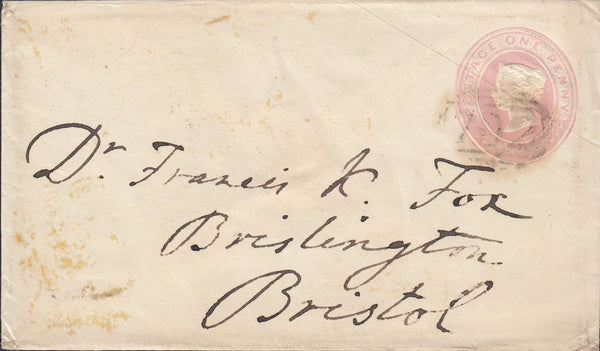 POSTAGE ONE PENNY
Dr Francis K. Fox
Brislington
Bristol